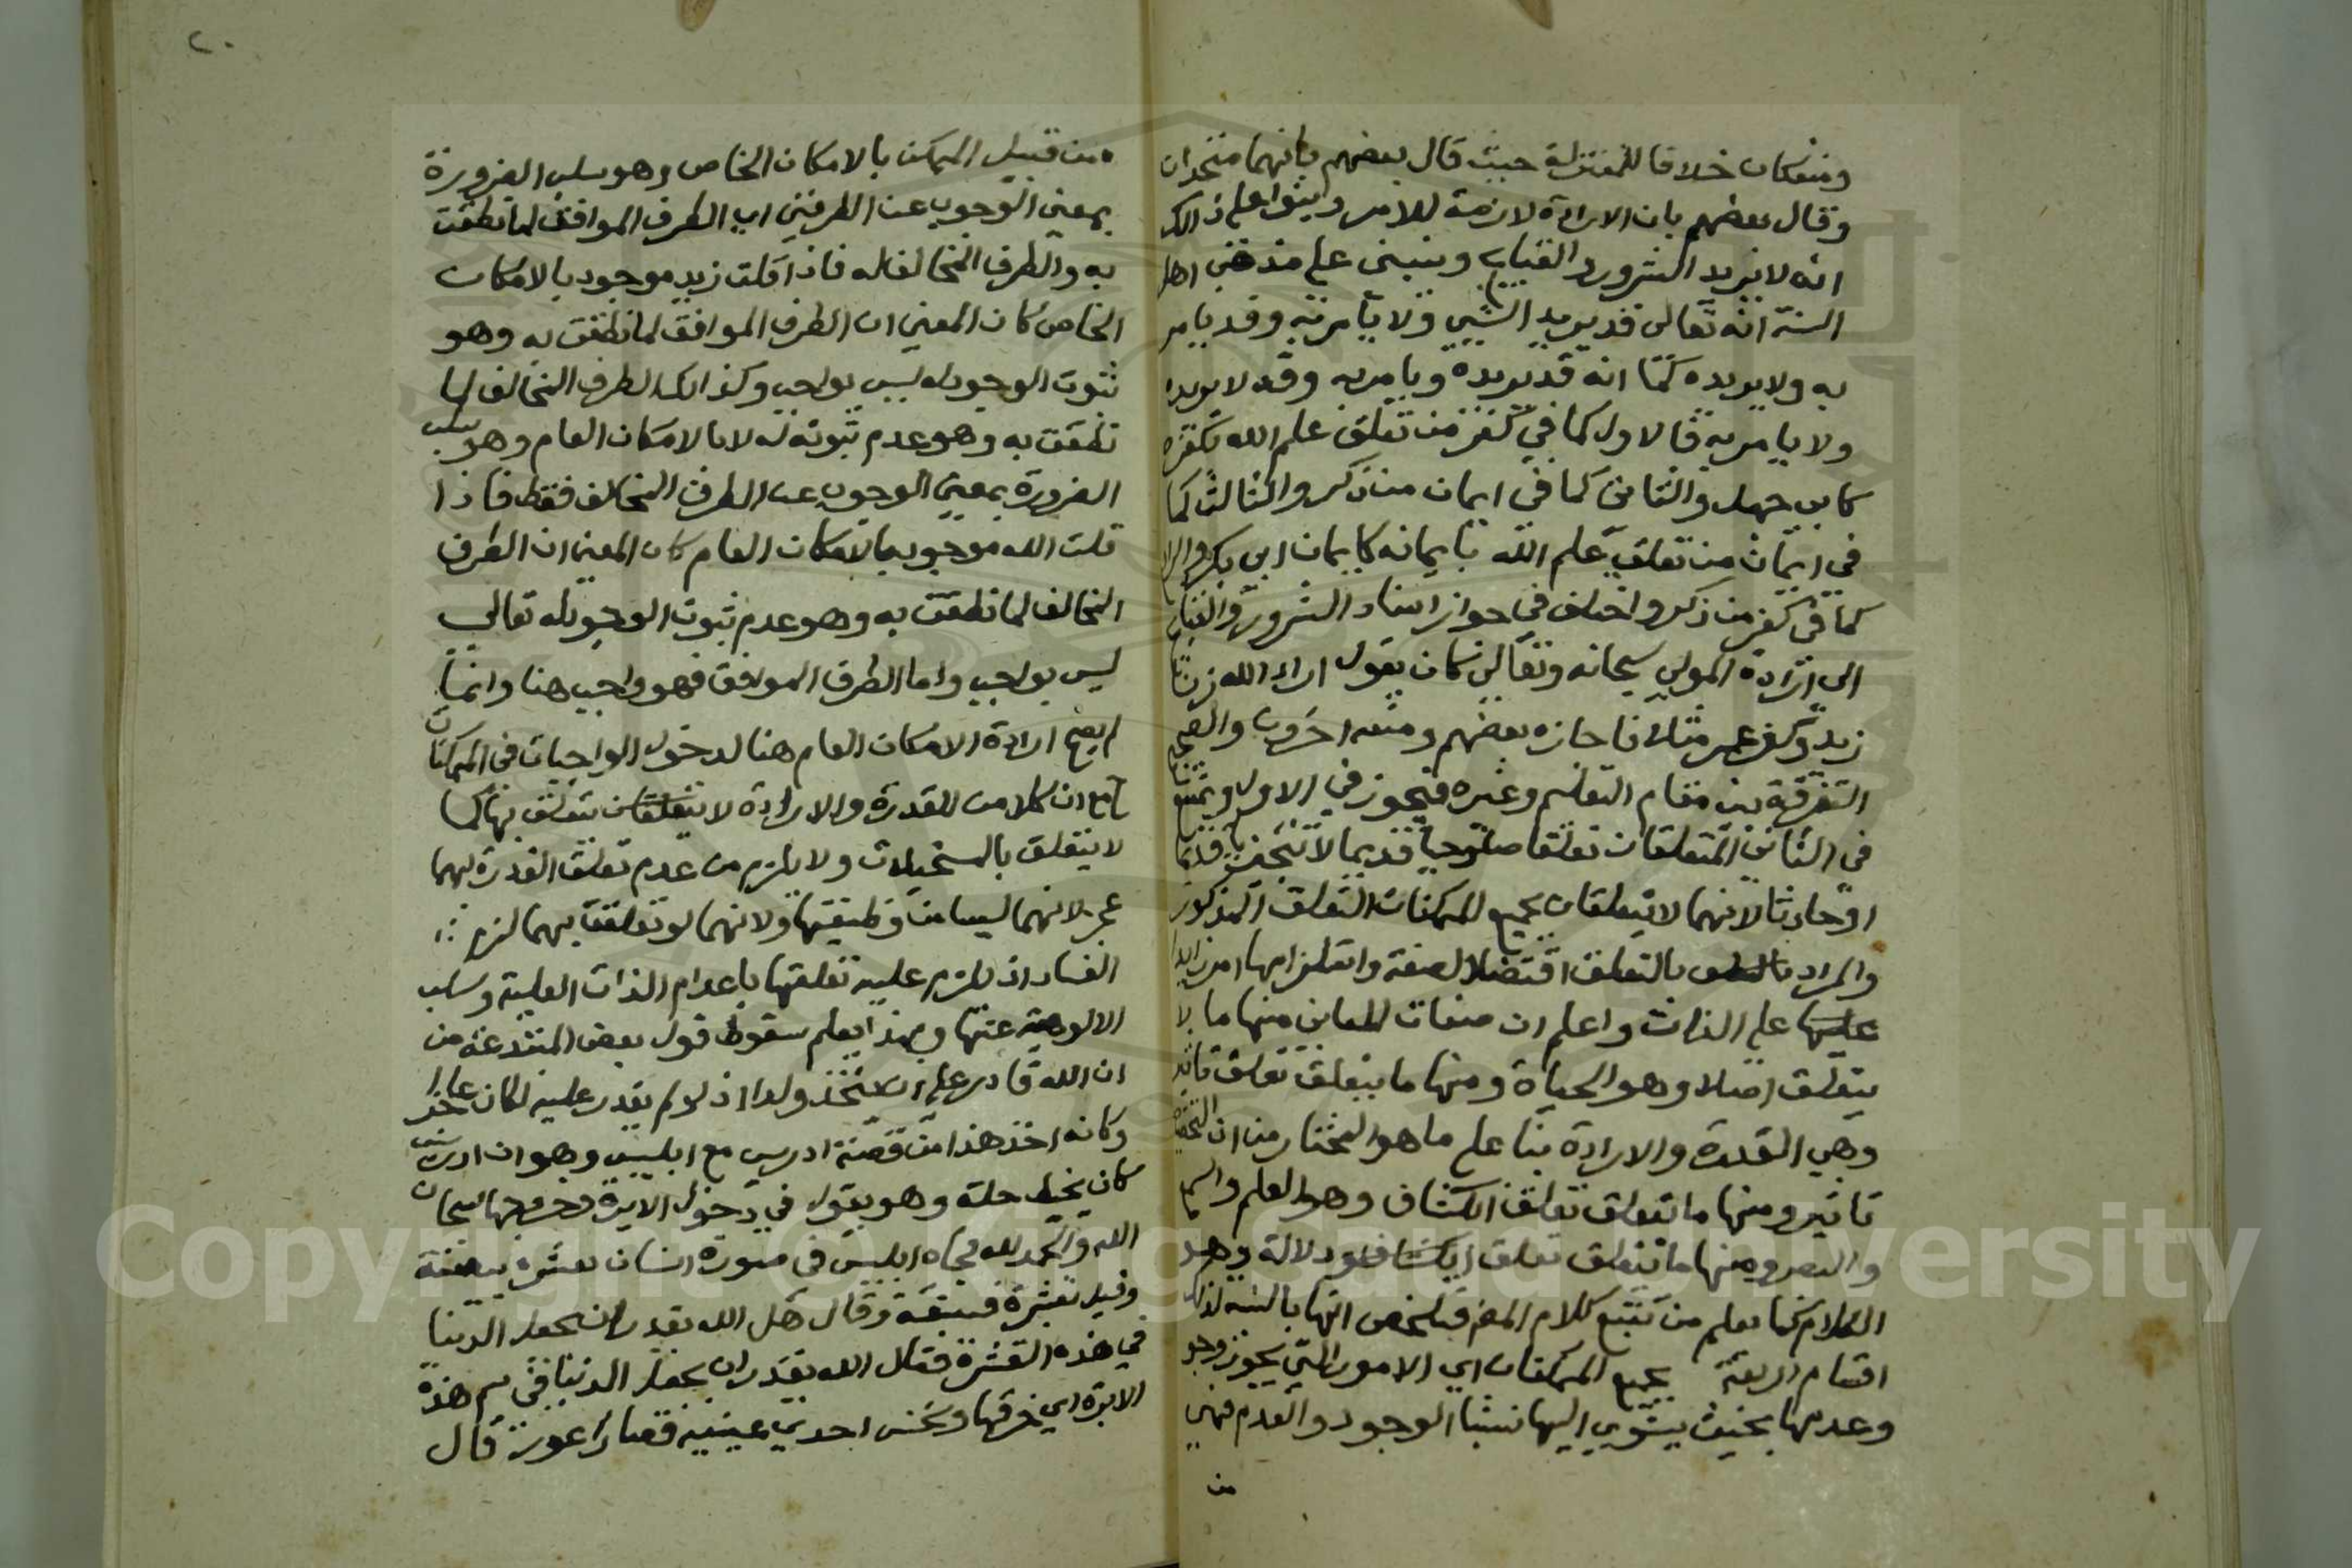 ومنفكان خلافا للمعتزلة حيث قال بعضهم بانهما متحدان
وقال بعضهم بان الارادة لازمة للامر وابنوا على ذالك
انه لا يريد الشرور والقبايح وينبني على مذهب اهل
السنة انه تعالى قد يريد الشيي ولا يامر به وقد يامر
به ولا يريده كما انه قد يريده ويامر به وقد لا يريده
ولا يامر به فالاول كما في كفر من تعلق علم الله بكفره
كابي جهل والثاني كما في ايمان من ذكر والثالث كما
في ايمان من تعلق علم الله بايمانه كايمان ابي بكر والرا
كما في كفر من ذكر واختلف في جواز اسناد الشرور والقبايح
الى ارادة المولى سبحانه وتعالى كان يقول اراد الله زنا
زيد وكفر عمر مثلا فاجازه بعضهم ومنعه اخرون والصحيح
التفرقة بين مقام التعليم وغيره فيجوز في الاول ويمتنع
في الثاني المتعلقان تعلقا صلوحيا قديما لا تنجيزيا قديما
او حادثا لانهما لا يتعلقان بجميع الممكنات التعلق المذكور
والمراد بالتعلق اقتضا الصفة واستلزامها امرا زايدا
على الذات واعلم ان صفات المعاني منها ما لا
يتعلق اصلا وهو الحياة ومنها ما يتعلق تعلق تاثير
وهي القدرة والارادة بنا على ما هو المختار من ان التخصيص
تاثير ومنها ما تتعلق تعلق انكشاف وهو العلم والسمع
والبصر ومنها ما تتعلق تعلق دلالة وهو
الكلام كما يعلم من تتبع كلام المص فتلخص انها بالنسبة لذلك
اقسام اربعة بجميع الممكنات اي الامور التي يجوز وجودها
وعدمها بحيث يستوي اليها نسبتا الوجود والعدم فهي
من
٢٠
من قبيل الممكن بالامكان الخاص وهو سلب الضرورة
بمعنى الوجوب عن الطرفين اي الطرف الموافق لما نطقت
به والطرف المخالف له فاذا قلت زيد موجود بالامكان
الخاص كان المعنى ان الطرف الموافق لما نطقت به وهو
ثبوت الوجود له ليس بواجب وكذالك الطرف المخالف لما
نطقت به وهو عدم ثبوته له لا بالامكان العام وهو سلب
الضرورة بمعنى الوجوب عن الطرف المخالف فقط فاذا
قلت الله موجود بالامكان العام كان المعنى ان الطرف
المخالف لما نطقت به وهو عدم ثبوت الوجود له تعالى
ليس بواجب واما الطرف الموافق فهو واجب هنا وانما
لم يصح ارادة الامكان العام هنا لدخول الواجبات في الممكنات
مع ان كلا من القدرة والارادة لا يتعلق بها كما
لا يتعلق بالمستحيلات ولا يلزم من عدم تعلق القدرة بهما
عجز لانهما ليسا من وظيفتها ولانهما لو تعلقت بهما لزم
الفساد اذ يلزم عليه تعلقها باعدام الذات العلية وسلب
الالوهية عنها وبهذا يعلم سقوط قول بعض المبتدعة من
ان الله قادر على ان يتخذ ولدا اذ لو لم يقدر عليه لكان عاجزا
وكانه اخذ هذا من قصة ادريس مع ابليس وهو ان ادريس
كان يخيط حلة وهو يقول في دخول الابرة وخروجها سبحان
الله والحمد لله فجاه ابليس في صورة انسان بقشرة بيضة
وقيل بقشرة فستقة وقال هل الله يقدر ان يجعل الدنيا
في هذه القشرة فقال الله يقدر ان يجعل الدنيا في سم هذه
الابرة اي خرقها ونخس احدى عينيه فصار اعور قال